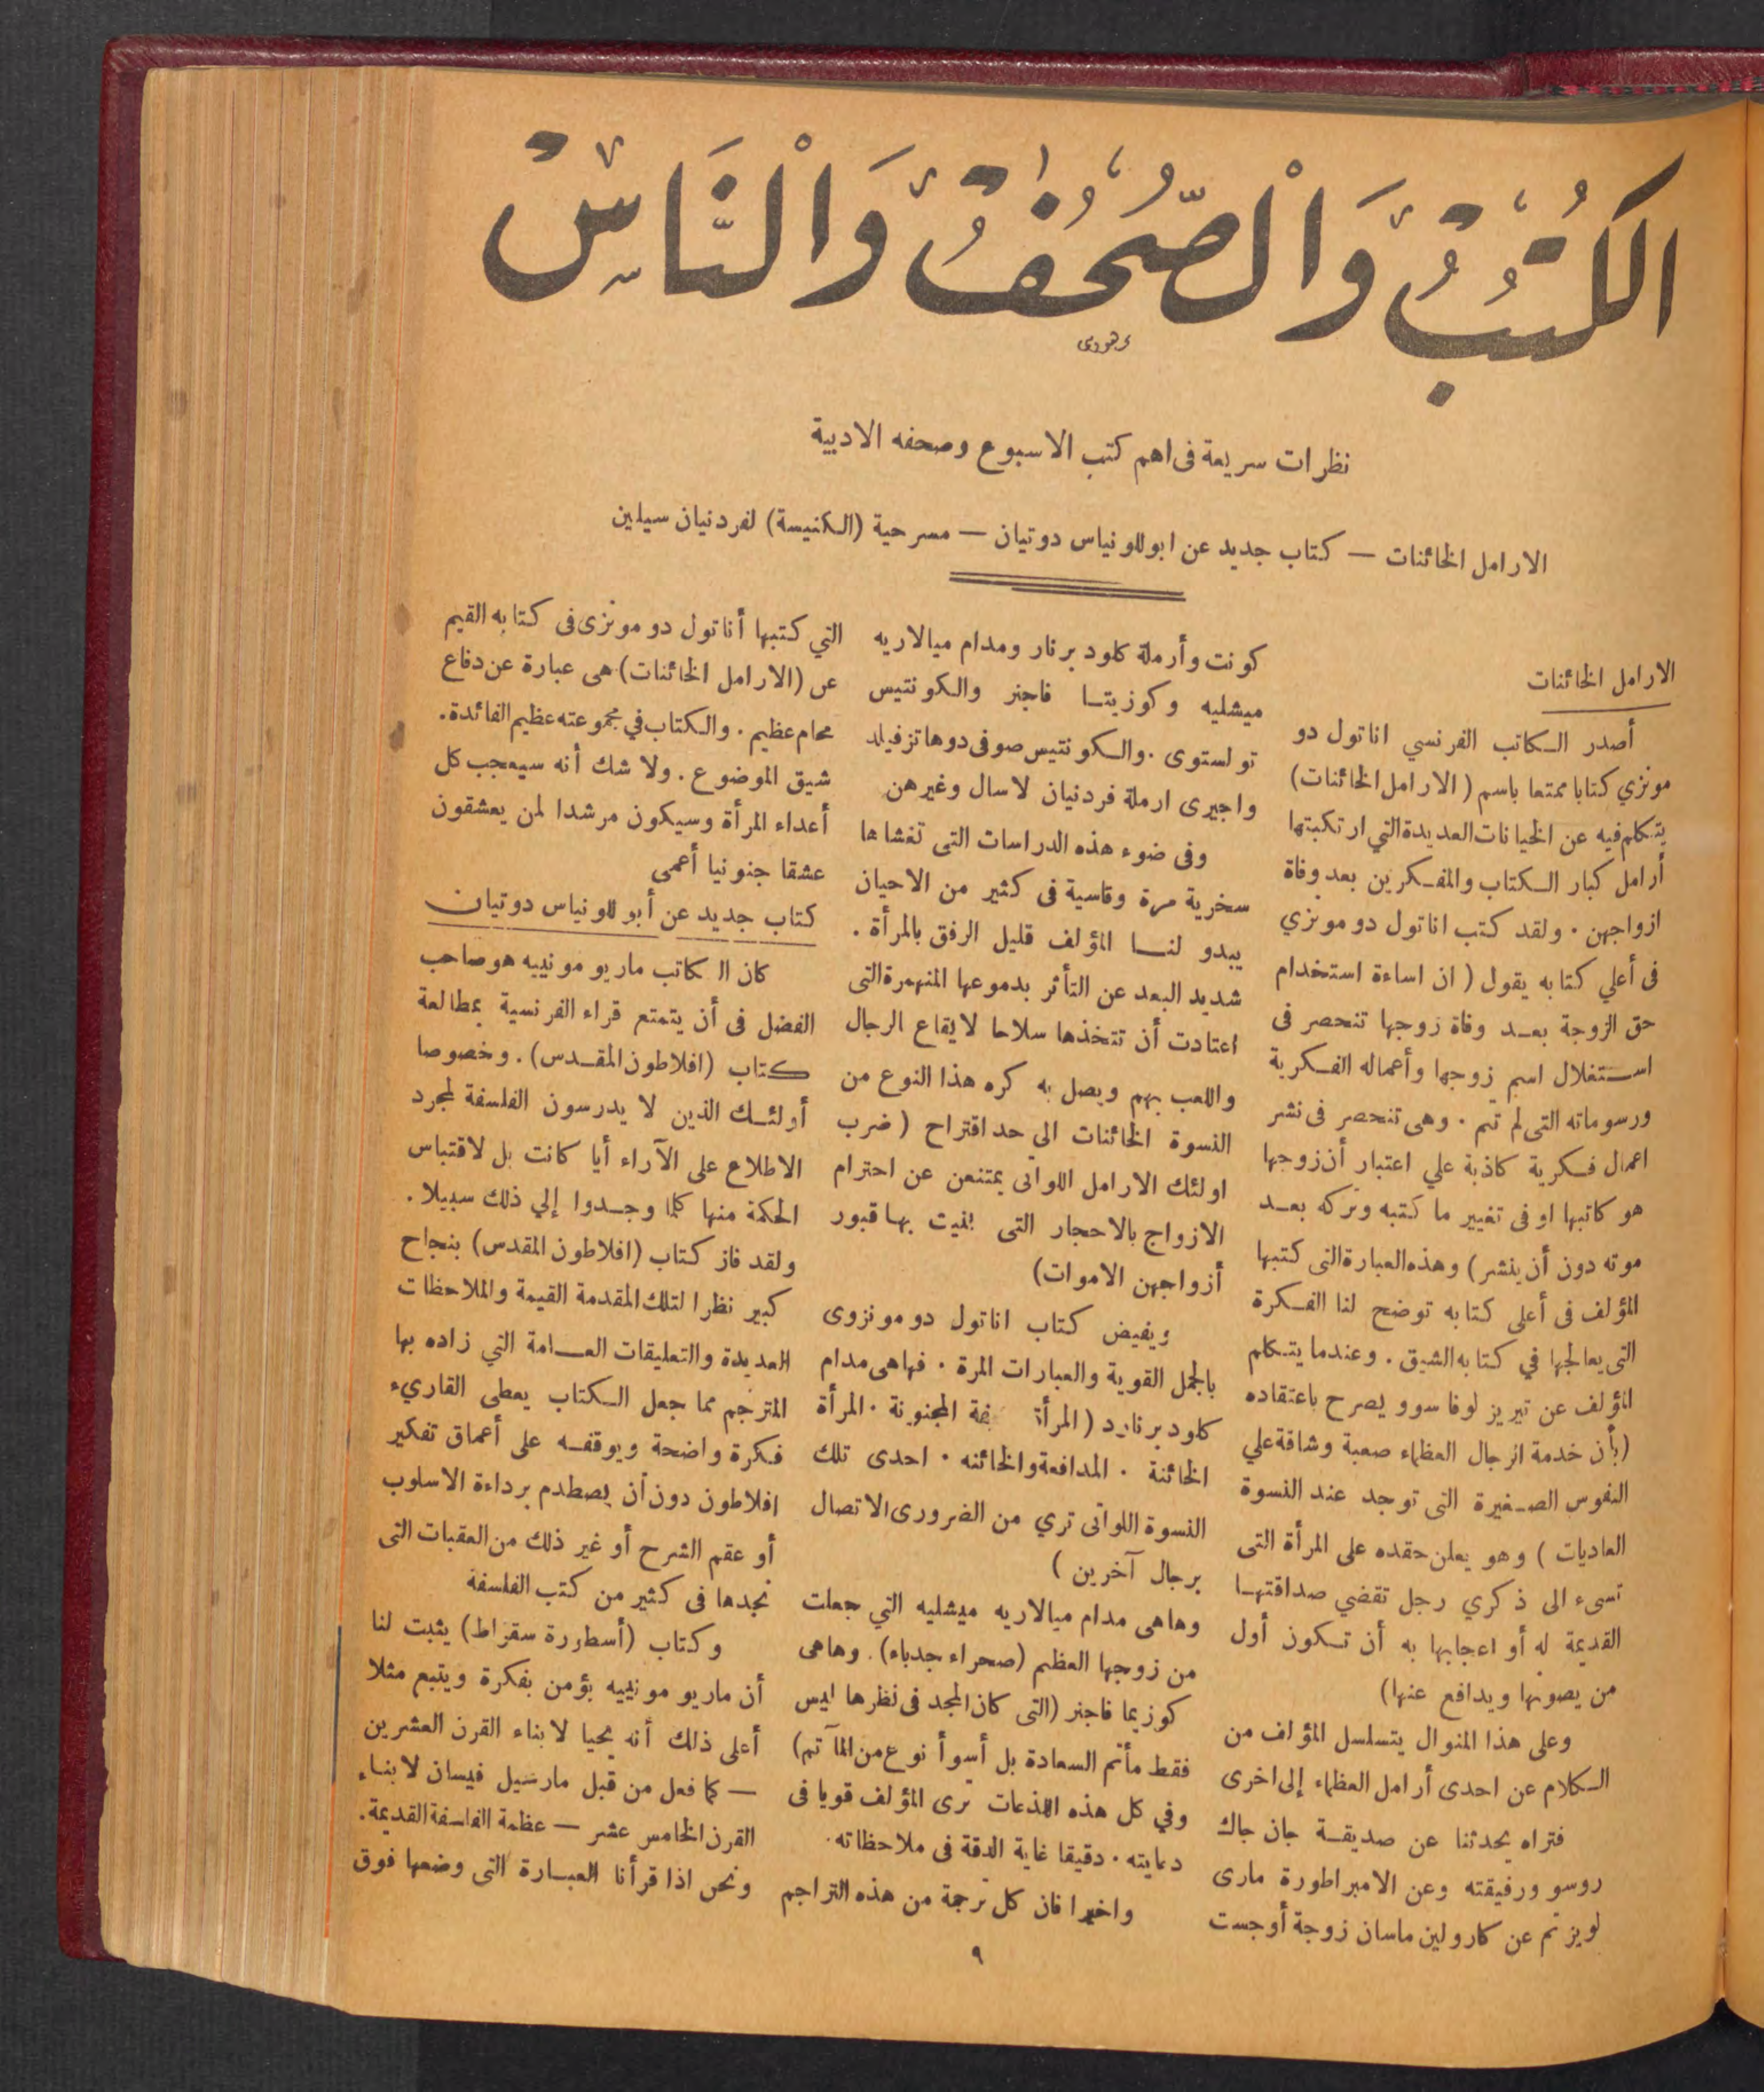 الكُتُبُ وَالْصُّحُفُ وَالْنَّاسِ
نظرات سريعة فى اهم كتب الاسبوع وصحفه الادبية
الارامل الخائنات — كتاب جديد عن ابوللونياس دوتيان — مسرحية (الكنيسة) لفردنيان سيلين
الارامل الخائنات
أصدر الكاتب الفرنسي اناتول دو
مونزي كتابا ممتعا باسم ( الارامل الخائنات)
يتكلم فيه عن الخيانات العديدة التي ارتكبتها
أرامل كبار الكتاب والمفكرين بعد وفاة
ازواجهن . ولقد كتب اناتول دو مونزي
فى أعلي كتابه يقول ( ان اساءة استخدام
حق الزوجة بعد وفاة زوجها تنحصر فى
استغلال اسم زوجها وأعماله الفكرية
ورسوماته التى لم تتم . وهى تنحصر فى نشر
اعمال فكرية كاذبة علي اعتبار أن زوجها
هو كاتبها او فى تغيير ما كتبه وتركه بعد
موته دون أن ينشر ) وهذه العبارة التى كتبها
المؤلف فى أعلى كتابه توضح لنا الفكرة
التى يعالجها في كتابه الشيق . وعندما يتكلم
المؤلف عن تيريز لوفاسوو يصرح باعتقاده
(بأن خدمة الرجال العظماء صعبة وشاقة علي
النفوس الصغيرة التى توجد عند النسوة
العاديات ) وهو يعلن حقده على المرأة التى
تسىء الى ذكري رجل تقضي صداقتها
القديمة له أو اعجابها به أن تكون أول
من يصونها ويدافع عنها)
وعلى هذا المنوال يتسلسل المؤلف من
الكلام عن احدى أرامل العظماء إلى اخرى
فتراه يحدثنا عن صديقة جان جاك
روسو ورفيقته وعن الامبراطورة مارى
لويز ثم عن كارولين ماسان زوجة أوجست
كونت وأرملة كلود برنار ومدام ميالاريه
ميشليه وكوزيتا فاجنر والكونتيس
تولستوى . والكونتيس صوفى دوهاتزفيلد
واجيرى ارملة فردنيان لاسال وغيرهن
وفى ضوء هذه الدراسات التى تغشاها
سخرية مرة وقاسية فى كثير من الاحيان
يبدو لنا المؤلف قليل الرفق بالمرأة .
شديد البعد عن التأثر بدموعها المنهمرة التى
اعتادت أن تتخذها سلاحا لايقاع الرجال
واللعب بهم ويصل به كره هذا النوع من
النسوة الخائنات الي حد اقتراح ( ضرب
اولئك الارامل اللواتى يمتنعن عن احترام
الازواج بالاحجار التى بنيت بها قبور
أزواجهن الاموات)
ويفيض كتاب اناتول دو مونزوى
بالجمل القوية والعبارات المرة . فهاهى مدام
كلود برنارد ( المرأة المجنونة . المرأة
الخائنة . المدافعة والخائنه . احدى تلك
النسوة اللواتى تري من الضرورى الاتصال
برجال آخرين )
وهاهى مدام ميالاريه ميشليه التي جعلت
من زوجها العظيم (صحراء جدباء) . وهاهى
كوزيما فاجنر (التى كان المجد فى نظرها ليس
فقط مأتم السعادة بل أسوأ نوع من المآتم)
وفي كل هذه اللذعات نرى المؤلف قويا فى
دعابته . دقيقا غاية الدقة فى ملاحظاته .
واخيرا فان كل ترجمة من هذه التراجم
التي كتبها أناتول دو مونزى فى كتابه القيم
عن (الارامل الخائنات) هى عبارة عن دفاع
محام عظيم . والكتاب في مجموعته عظيم الفائدة .
شيق الموضوع . ولا شك أنه سيعجب كل
أعداء المرأة وسيكون مرشدا لمن يعشقون
عشقا جنونيا أعمى
كتاب جديد عن أبوللونياس دوتيان
كان الكاتب ماريو مونييه هو صاحب
الفضل فى أن يتمتع قراء الفرنسية بمطالعة
كتاب (افلاطون المقدس) . وخصوصا
أولئك الذين لا يدرسون الفلسفة لمجرد
الاطلاع على الآراء أيا كانت بل لاقتباس
الحكمة منها كلما وجدوا إلي ذلك سبيلا .
ولقد فاز كتاب (افلاطون المقدس) بنجاح
كبير نظرا لتلك المقدمة القيمة والملاحظات
العديدة والتعليقات العامة التي زاده بها
المترجم مما جعل الكتاب يعطى القاريء
فكرة واضحة ويوقفه على أعماق تفكير
افلاطون دون أن يصطدم برداءة الاسلوب
أو عقم الشرح أو غير ذلك من العقبات التى
نجدها فى كثير من كتب الفلسفة
وكتاب (أسطورة سقراط) يثبت لنا
أن ماريو مونييه يؤمن بفكرة ويتبع مثلا
أعلى ذلك أنه يحيا لابناء القرن العشرين
— كما فعل من قبل مارسيل فيسان لابناء
القرن الخامس عشر — عظمة الفلسفة القديمة .
ونحن اذا قرأنا العبارة التى وضعها فوق
٩